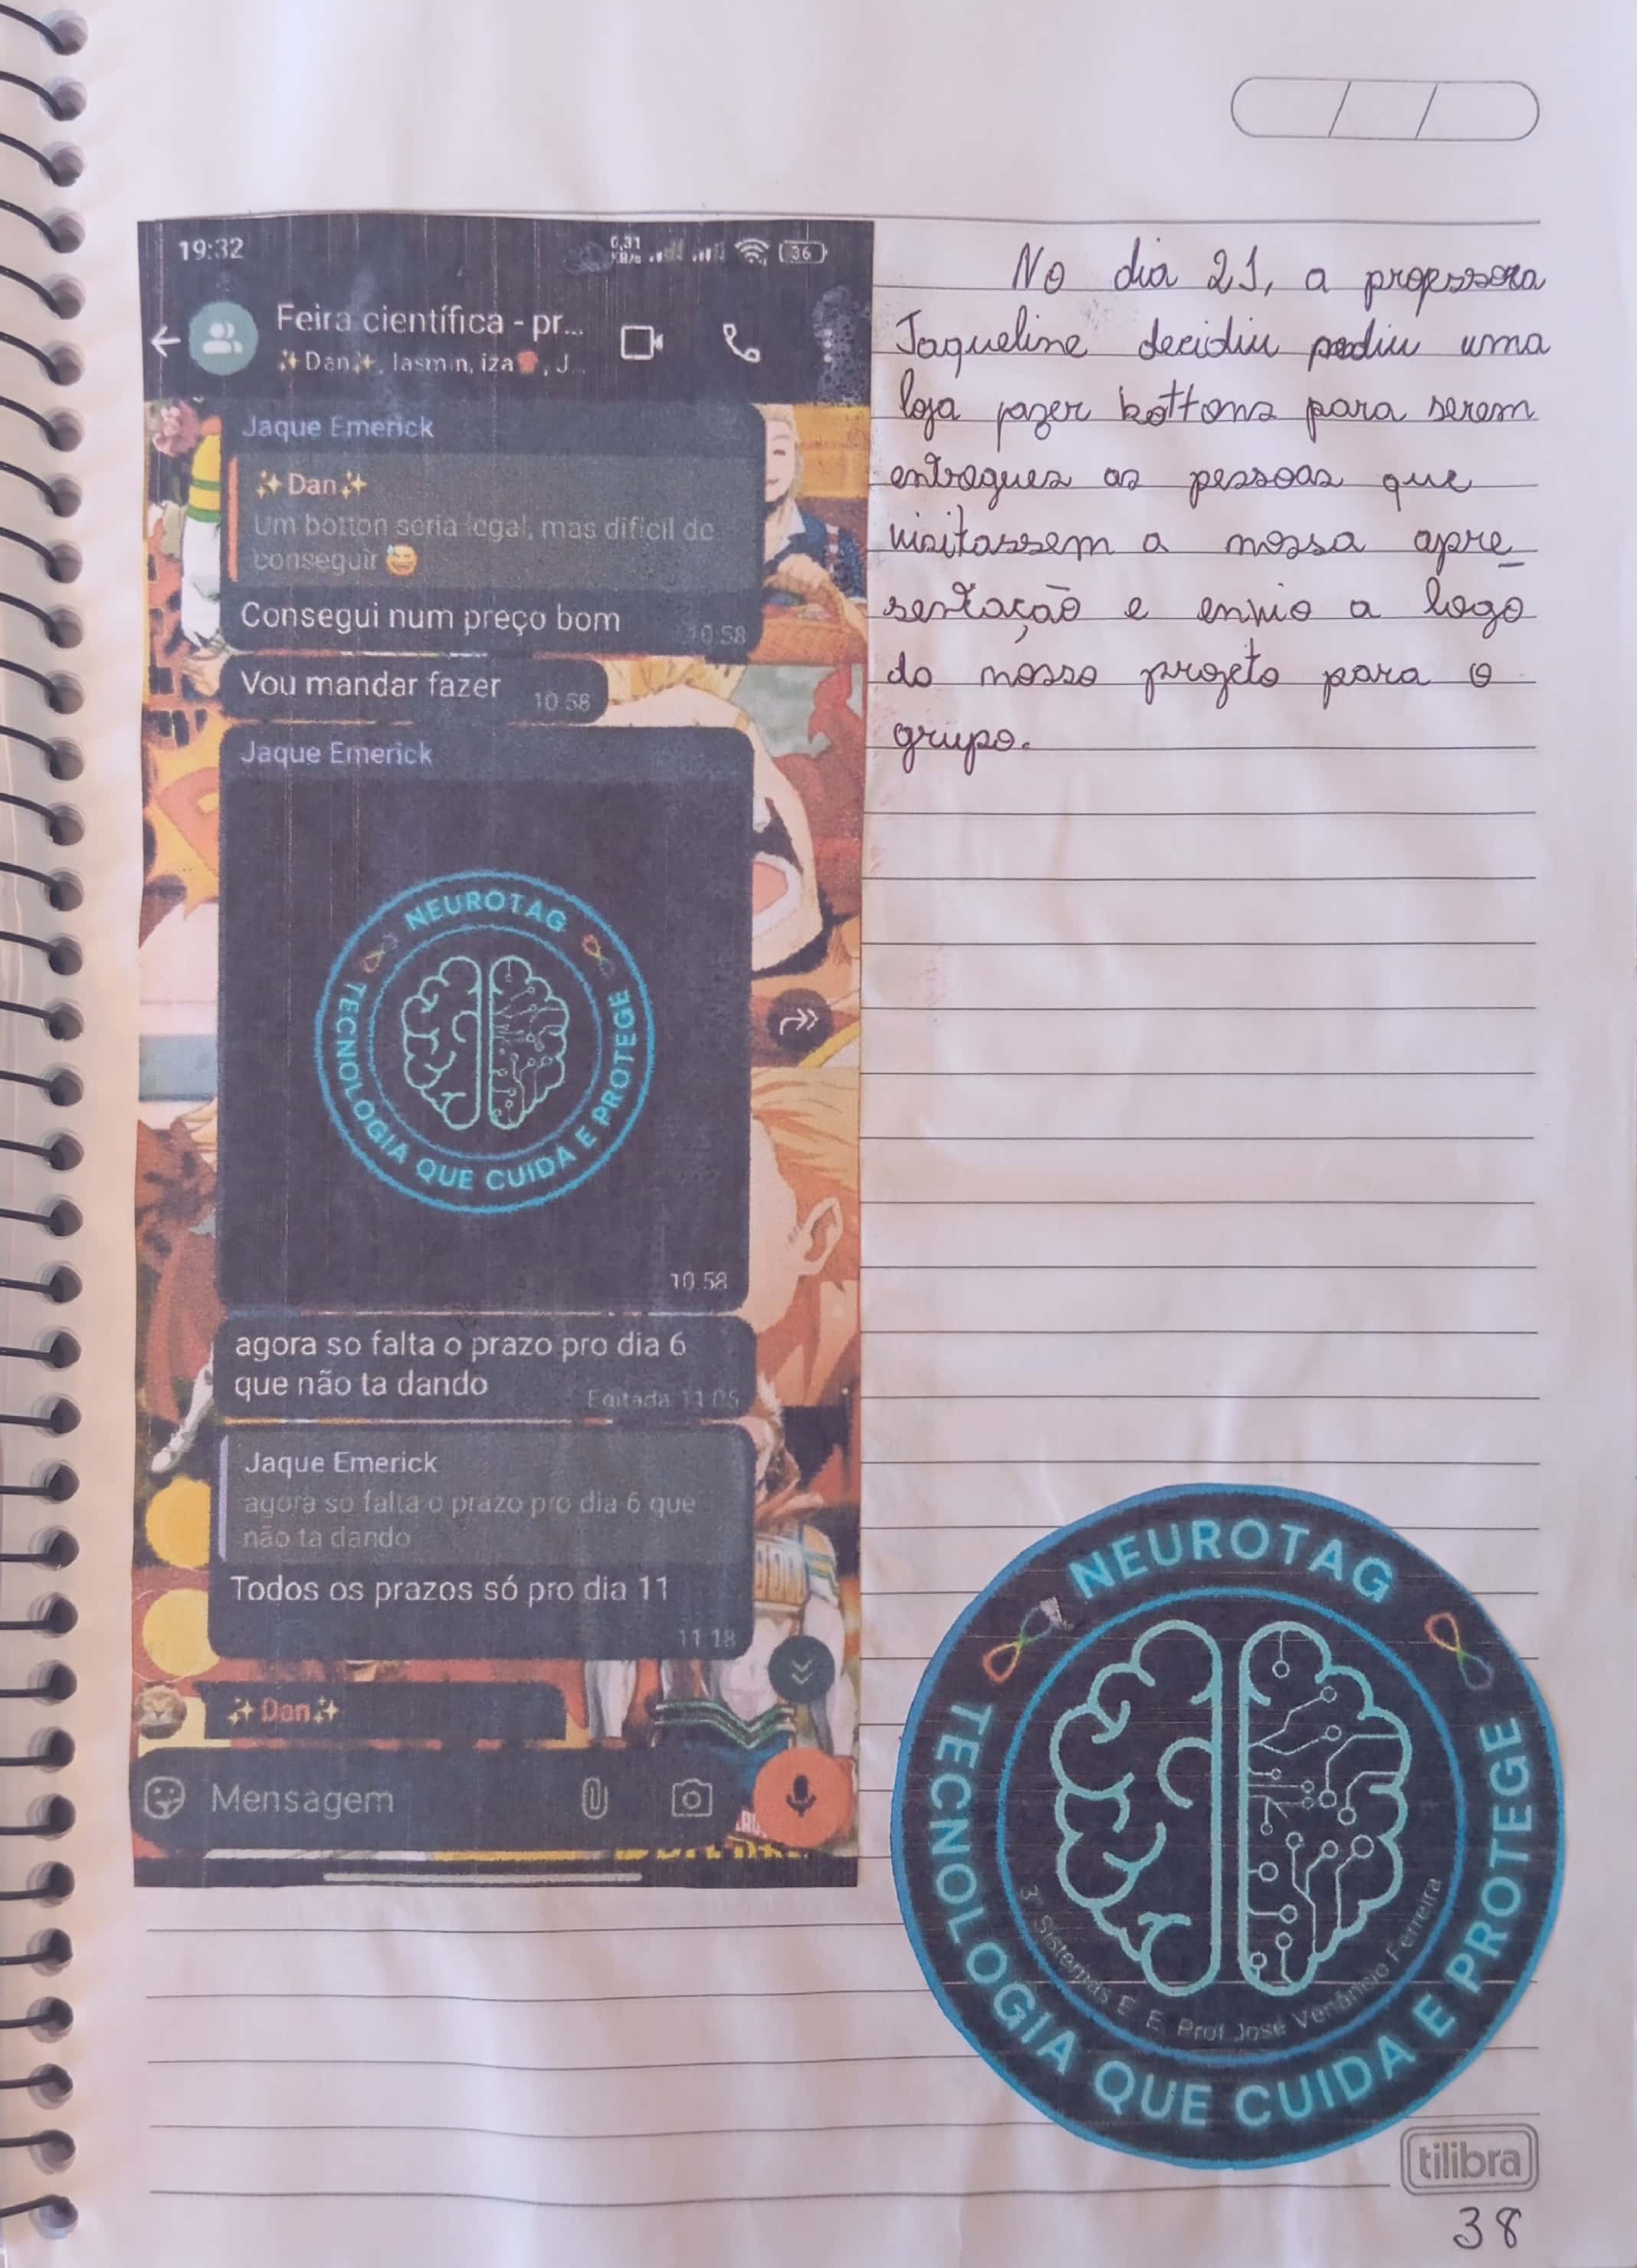 19:32
0,31
KB/s
36
Feira científica - pr...
✨Dan✨, Iasmin, iza🌹, J...
Jaque Emerick
✨Dan✨
Um botton seria legal, mas dificil de
conseguir 😅
Consegui num preço bom
10:58
Vou mandar fazer
10:58
Jaque Emerick
NEUROTAG
TECNOLOGIA QUE CUIDA E PROTEGE
10:58
agora so falta o prazo pro dia 6
que não ta dando
Editada 11:05
Jaque Emerick
agora so falta o prazo pro dia 6 que
não ta dando
Todos os prazos só pro dia 11
11:18
✨Dan✨
Mensagem
No dia 21, a professora
Jaqueline decidiu pediu uma
loja fazer bottons para serem
entregues as pessoas que
visitassem a nossa apre
sentação e envio a logo
do nosso projeto para o
grupo.
NEUROTAG
TECNOLOGIA QUE CUIDA E PROTEGE
3º Sistemas E. E. Prof José Venâncio Ferreira
tilibra
38